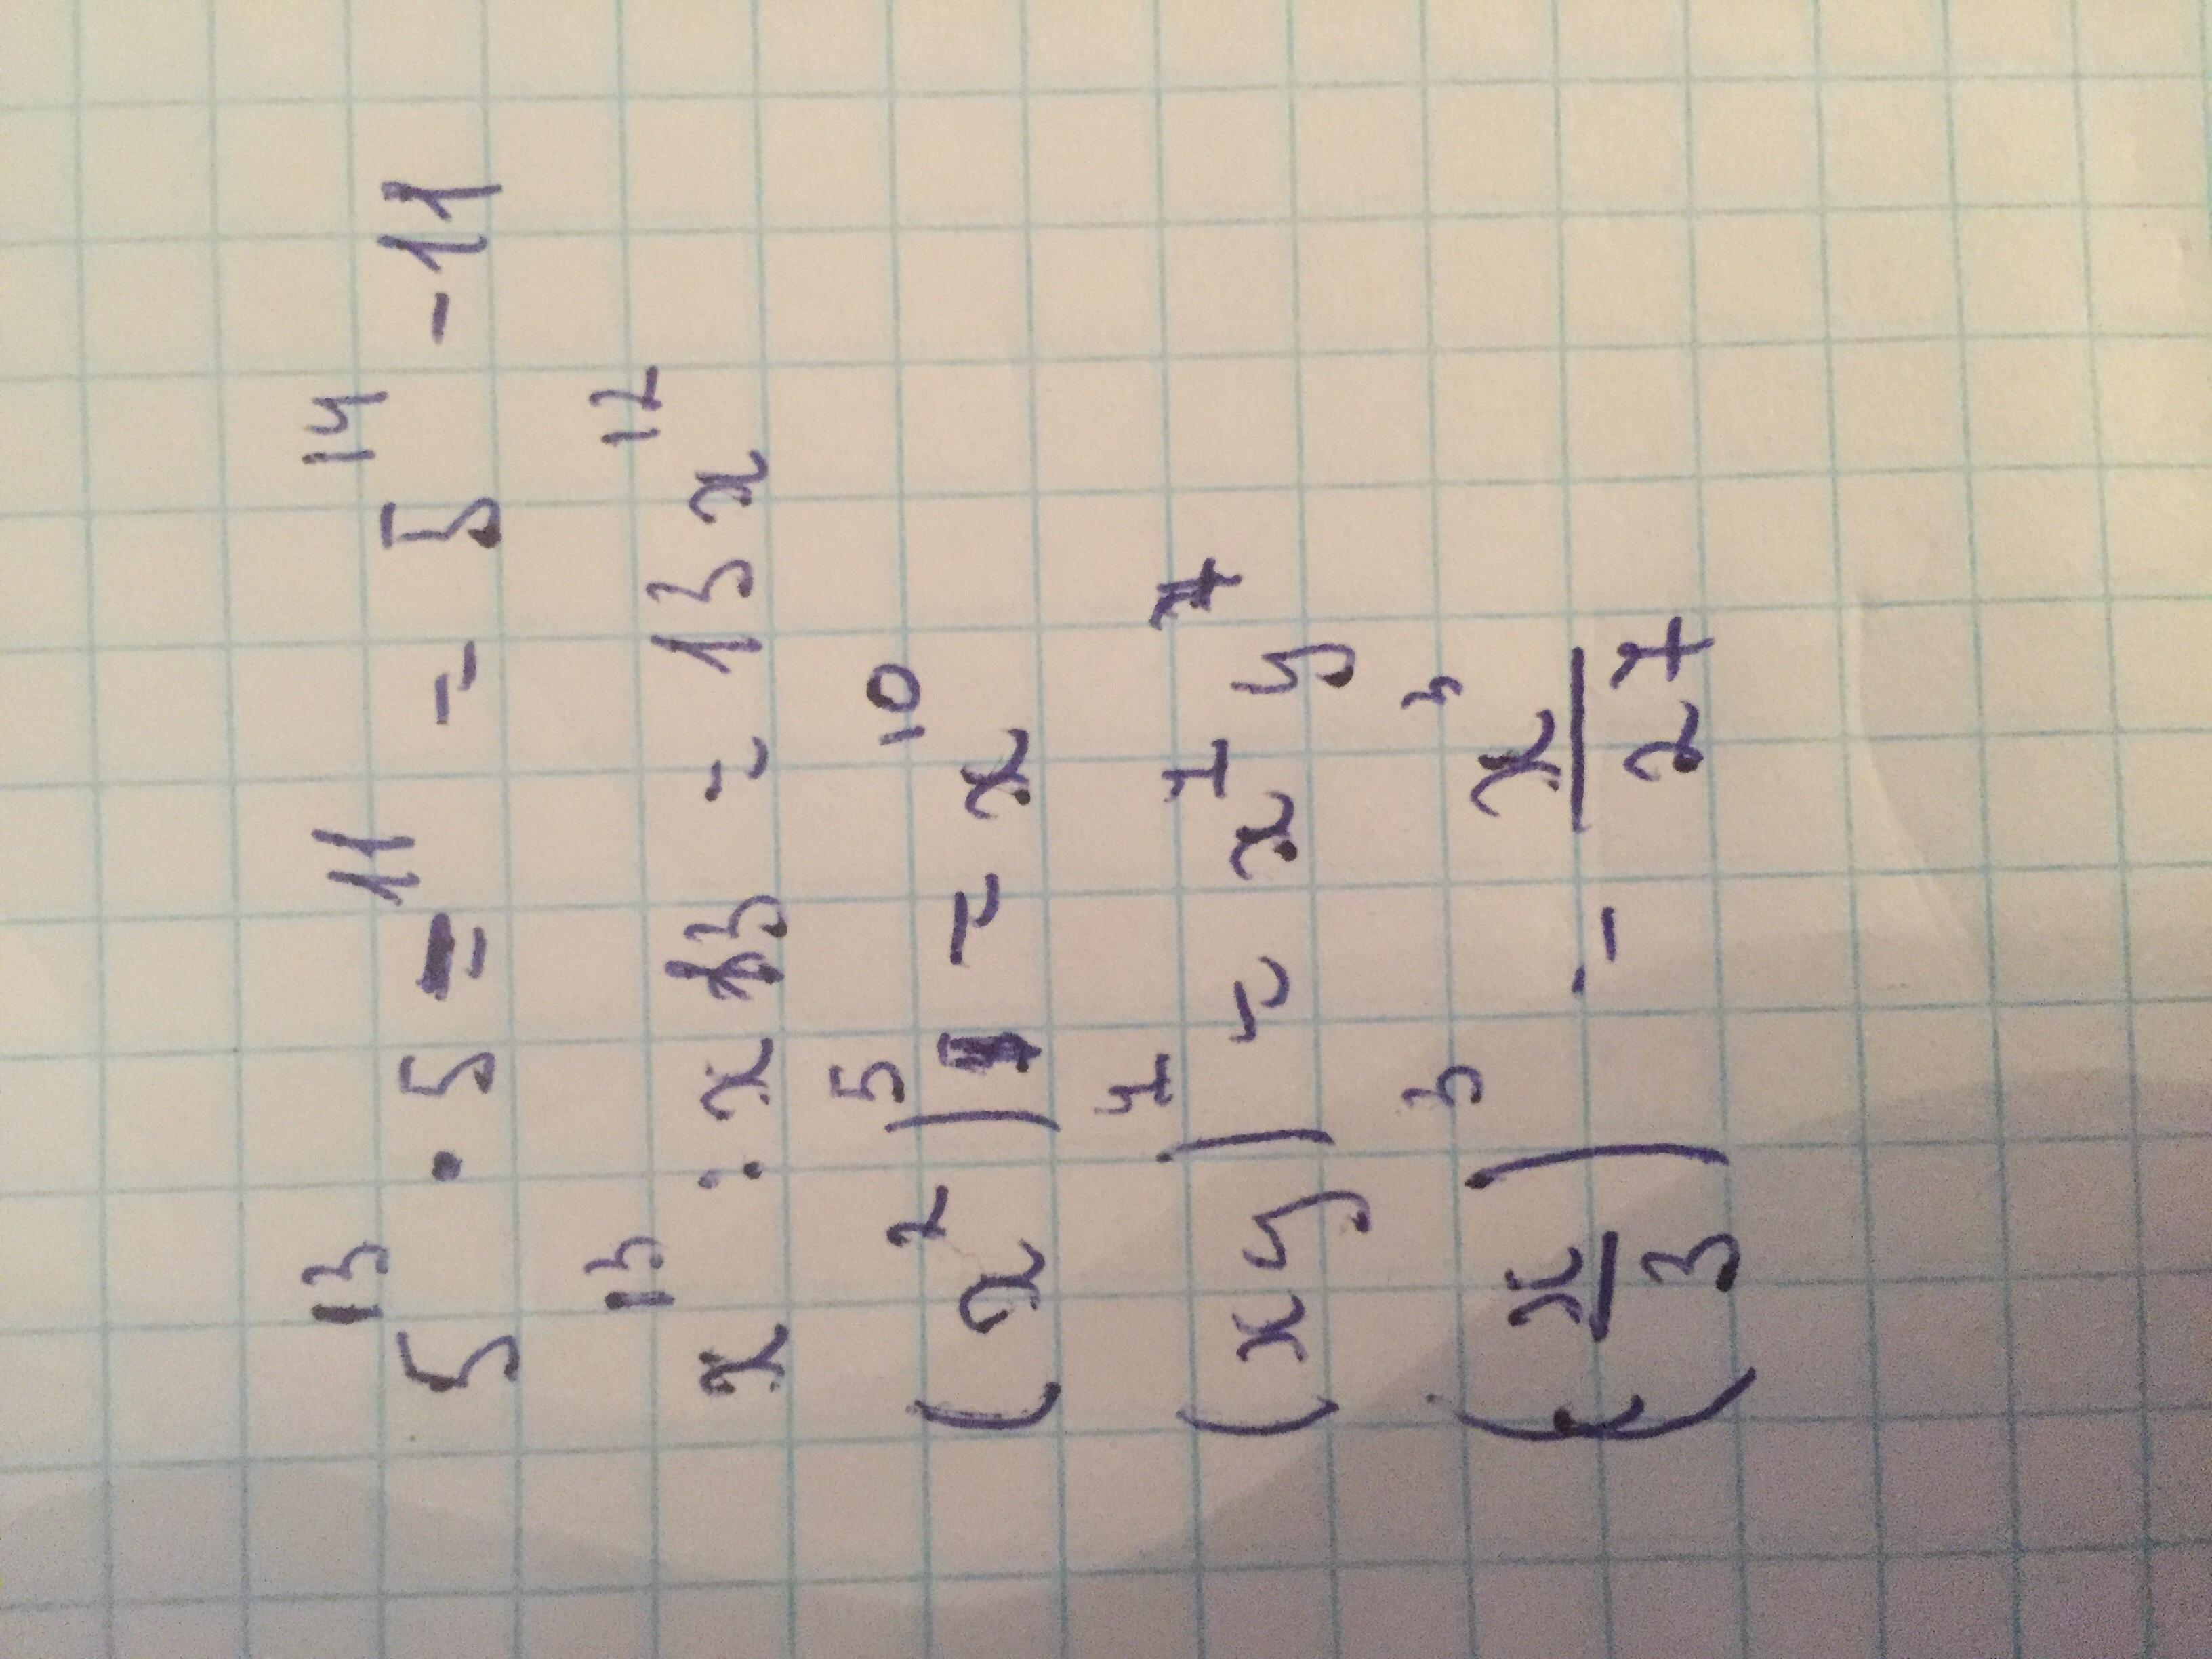 5¹³ · 5 = ¹¹ = 5¹⁴ - 11
x¹³ : x 13 = 13x¹²
(x²)⁵ = x¹⁰
(xy)⁷ = x⁷y⁷
(x/3)³ = x³/27